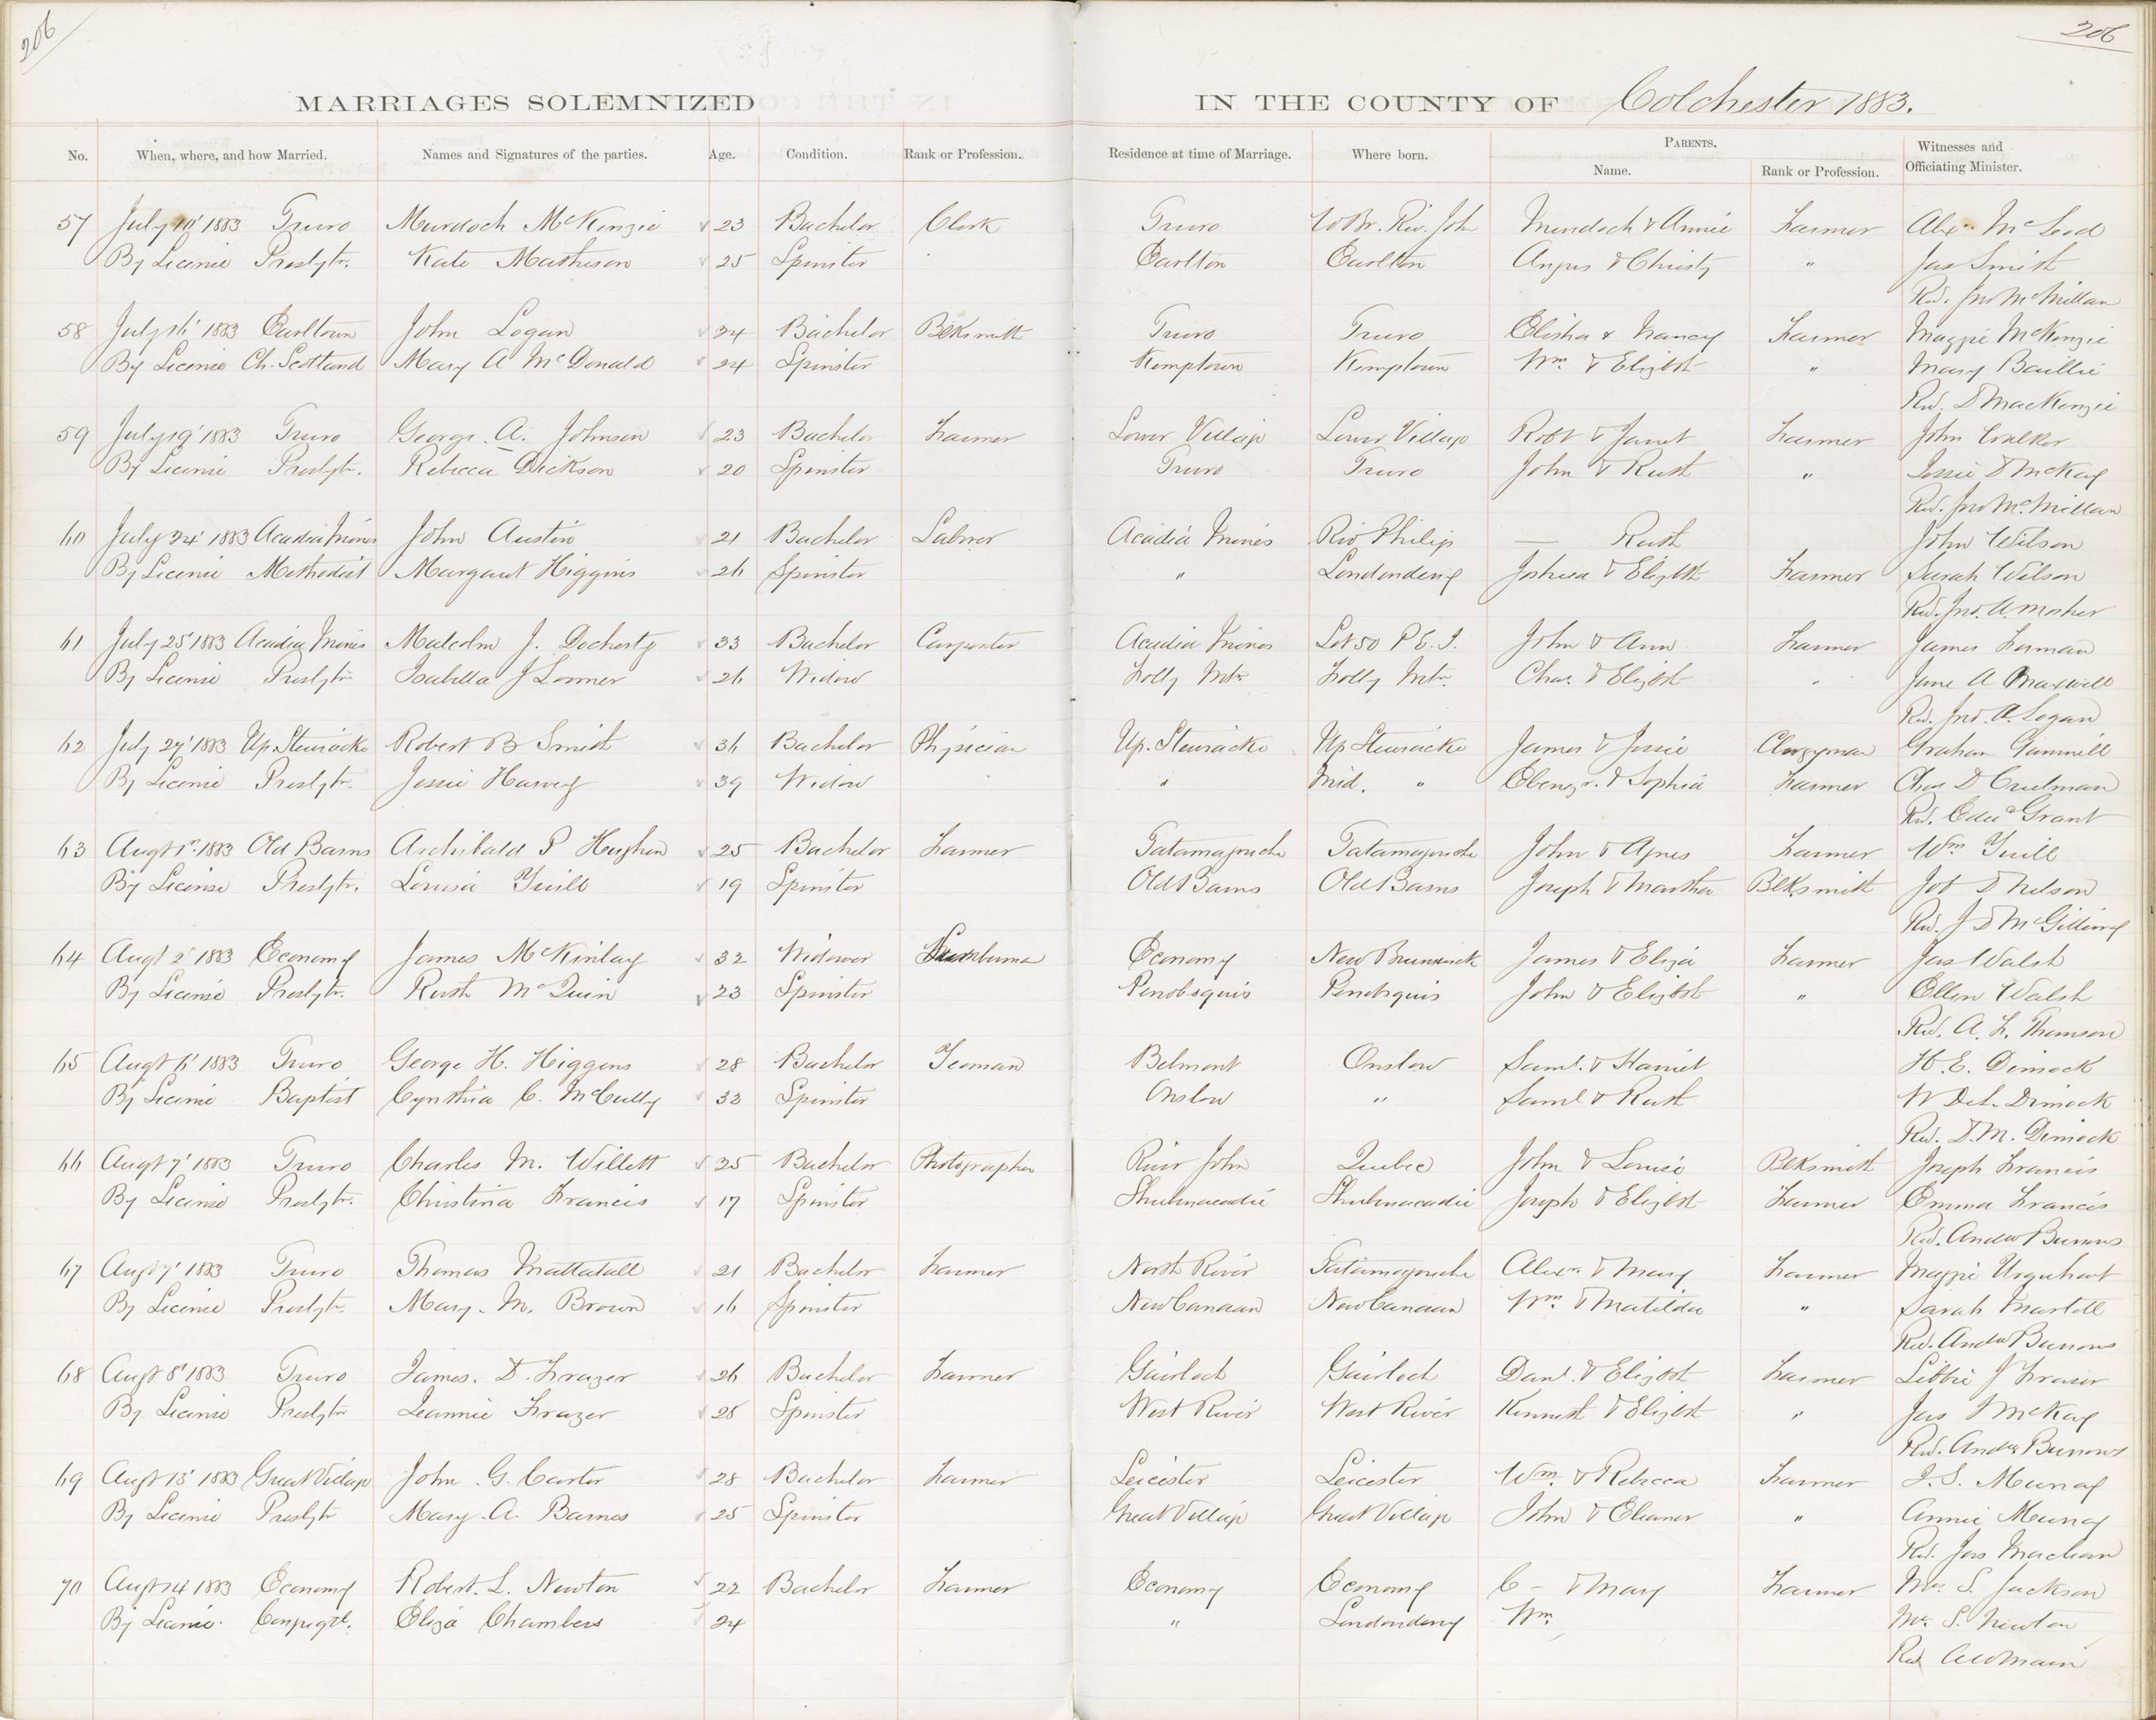 206
206
MARRIAGES SOLEMNIZED IN THE COUNTY OF Colchester 1883.
No. When, where, and how Married. Names and Signatures of the parties. Age. Condition. Rank or Profession. Residence at time of Marriage. Where born. PARENTS. Name. Rank or Profession. Witnesses and Officiating Minister.
57 July 10' 1883 Truro Murdoch McKenzie 23 Bachelor Clerk Truro W Br. Riv. John Murdoch & Annie Farmer Alex McLeod
By License Presbytr. Kate Matheson 25 Spinster Earlton Earlton Angus & Christy " Jas Smith
Rev. Jno McMillan
58 July 16' 1883 Earltown John Logan 24 Bachelor Blksmith Truro Truro Elisha & Nancy Farmer Maggie McKenzie
By License Ch. Scotland Mary A McDonald 24 Spinster Kemptown Kemptown Wm. & Elizbth " Mary Baillie
Rev. D MacKenzie
59 July 19' 1883 Truro George A. Johnson 23 Bachelor Farmer Lower Village Lower Village Robt & Janet Farmer John Walker
By License Presbytr. Rebecca Dickson 20 Spinster Truro Truro John & Ruth " Jessie D McKay
Rev. Jno McMillan
60 July 24' 1883 Acadia Mines John Austin 21 Bachelor Labrer Acadia Mines Riv Philip — Ruth John Wilson
By License Methodist Margaret Higgins 26 Spinster " Londonderry Joshua & Elizbth Farmer Sarah Wilson
Rev. Jno. A. Mosher
61 July 25' 1883 Acadia Mines Malcolm J. Docherty 33 Bachelor Carpenter Acadia Mines Lot 50 P E. I. John & Ann Farmer James Forman
By License Presbytr Isabella J Lormer 26 Widow Folly Mtn Folly Mtn. Chas. & Elizbth " Jane A Maxwell
Rev. Jno. A. Logan
62 July 27' 1883 Up. Stewiacke Robert B Smith 36 Bachelor Physician Up. Stewiacke Up Stewiacke James & Jessie Clergyman Graham Gammell
By License Presbytr. Jessie Harvey 39 Widow " Mid. " Ebenzr. & Sophia Farmer Chas D Creelman
Rev. Edwd Grant
63 Augt 1st. 1883 Old Barns Archibald P Hughen 25 Bachelor Farmer Tatamagouche Tatamagouche John & Agnes Farmer Wm Yuill
By License Presbytr. Louisa Yuill 19 Spinster Old Barns Old Barns Joseph & Martha Blksmith Job D Nelson
Rev. J D McGillivry
64 Augt 2' 1883 Economy James McKinlay 32 Widower Lumberman Economy New Brunswick James & Eliza Farmer Jas Walsh
By License Presbytr. Ruth McQuin 23 Spinster Penobsquis Penobsquis John & Elizbth " Ellen Walsh
Rev. A. F. Thomson
65 Augt 6' 1883 Truro George H. Higgens 28 Bachelor Yeoman Belmont Onslow Saml. & Harriet H. E. Dimock
By License Baptist Cynthia C. McCully 33 Spinster Onslow " Saml & Ruth W DeL. Dimock
Rev. D. M. Dimock
66 Augt 7' 1883 Truro Charles M. Willett 25 Bachelor Photographer River John Quebec John & Louise Blksmith Joseph Francis
By License Presbytr. Christina Francis 17 Spinster Shubnacadie Shubnacadie Joseph & Elizbth Farmer Emma Francis
Rev. Andw Burrows
67 Augt 7' 1883 Truro Thomas Mattatall 21 Bachelor Farmer North River Tatamagouche Alexr & Mary Farmer Maggie Urquhart
By License Presbytr. Mary M. Brown 16 Spinster New Canaan New Canaan Wm. & Matilda " Sarah Martell
Rev. Andw Burrows
68 Augt 8' 1883 Truro James D. Frazer 26 Bachelor Farmer Gairloch Gairloch Danl. & Elizbth Farmer Libbie J Fraser
By License Presbytr Jeannie Frazer 28 Spinster West River West River Kenneth & Elizbth " Jas J McKay
Rev. Andw Burrows
69 Augt 13' 1883 Great Village John G. Carter 28 Bachelor Farmer Leicester Leicester Wm. & Rebecca Farmer J. S. Murray
By License Presbytr Mary A. Barnes 25 Spinster Great Village Great Village John & Eleanor " Annie Murray
Rev. Jas Maclean
70 Augt 14 1883 Economy Robert L. Newton 22 Bachelor Farmer Economy Economy C – & Mary Farmer Mrs. S. Jackson
By License. Congregtl. Eliza Chambers 24 " Londonderry Wm Mr. S. Newton
Rev